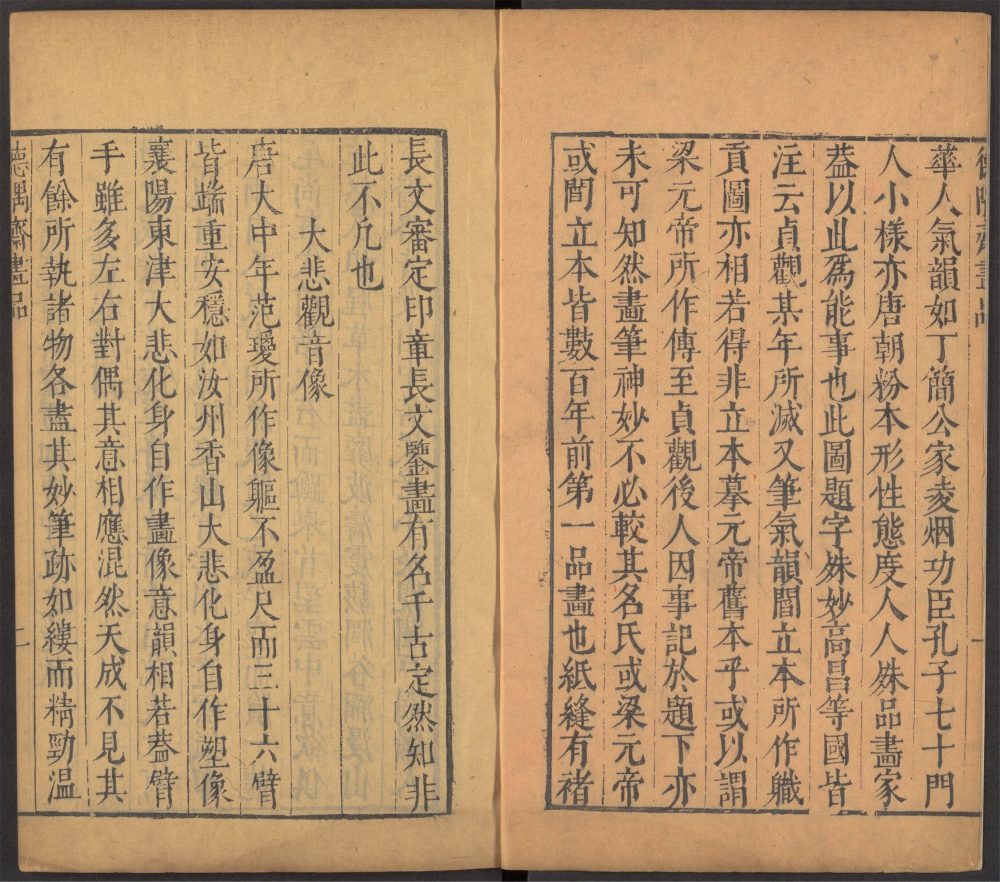 德隅齋畫品
華人氣韻如丁簡公家凌烟功臣孔子七十門
人小樣亦唐朝粉本形性態度人人殊品畫家
葢以此爲能事也此圖題字殊妙高昌等國皆
注云貞觀某年所滅又筆氣韻閻立本所作職
貢圖亦相若得非立本摹元帝舊本乎或以謂
梁元帝所作傳至貞觀後人因事記於題下亦
未可知然畫筆神妙不必較其名氏或梁元帝
或閻立本皆數百年前第一品畫也紙縫有褚
長文審定印章長文鑒畫有名千古定然知非
此不凢也
大悲觀音像
唐大中年范瓊所作像軀不盈尺而三十六臂
皆端重安穩如汝州香山大悲化身自作塑像
襄陽東津大悲化身自作畫像意韻相若葢臂
手雖多左右對偶其意相應混然天成不見其
有餘所執諸物各盡其妙筆跡如縷而精勁温
德隅齋畫品
二